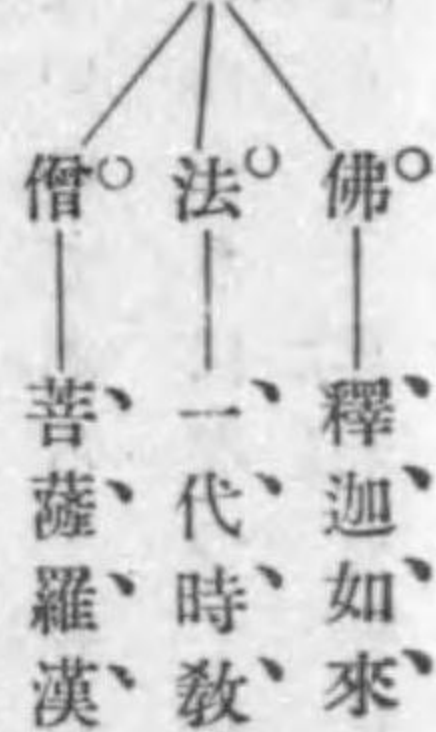 佛
釋迦如來
法
一代時教
僧
菩薩羅漢